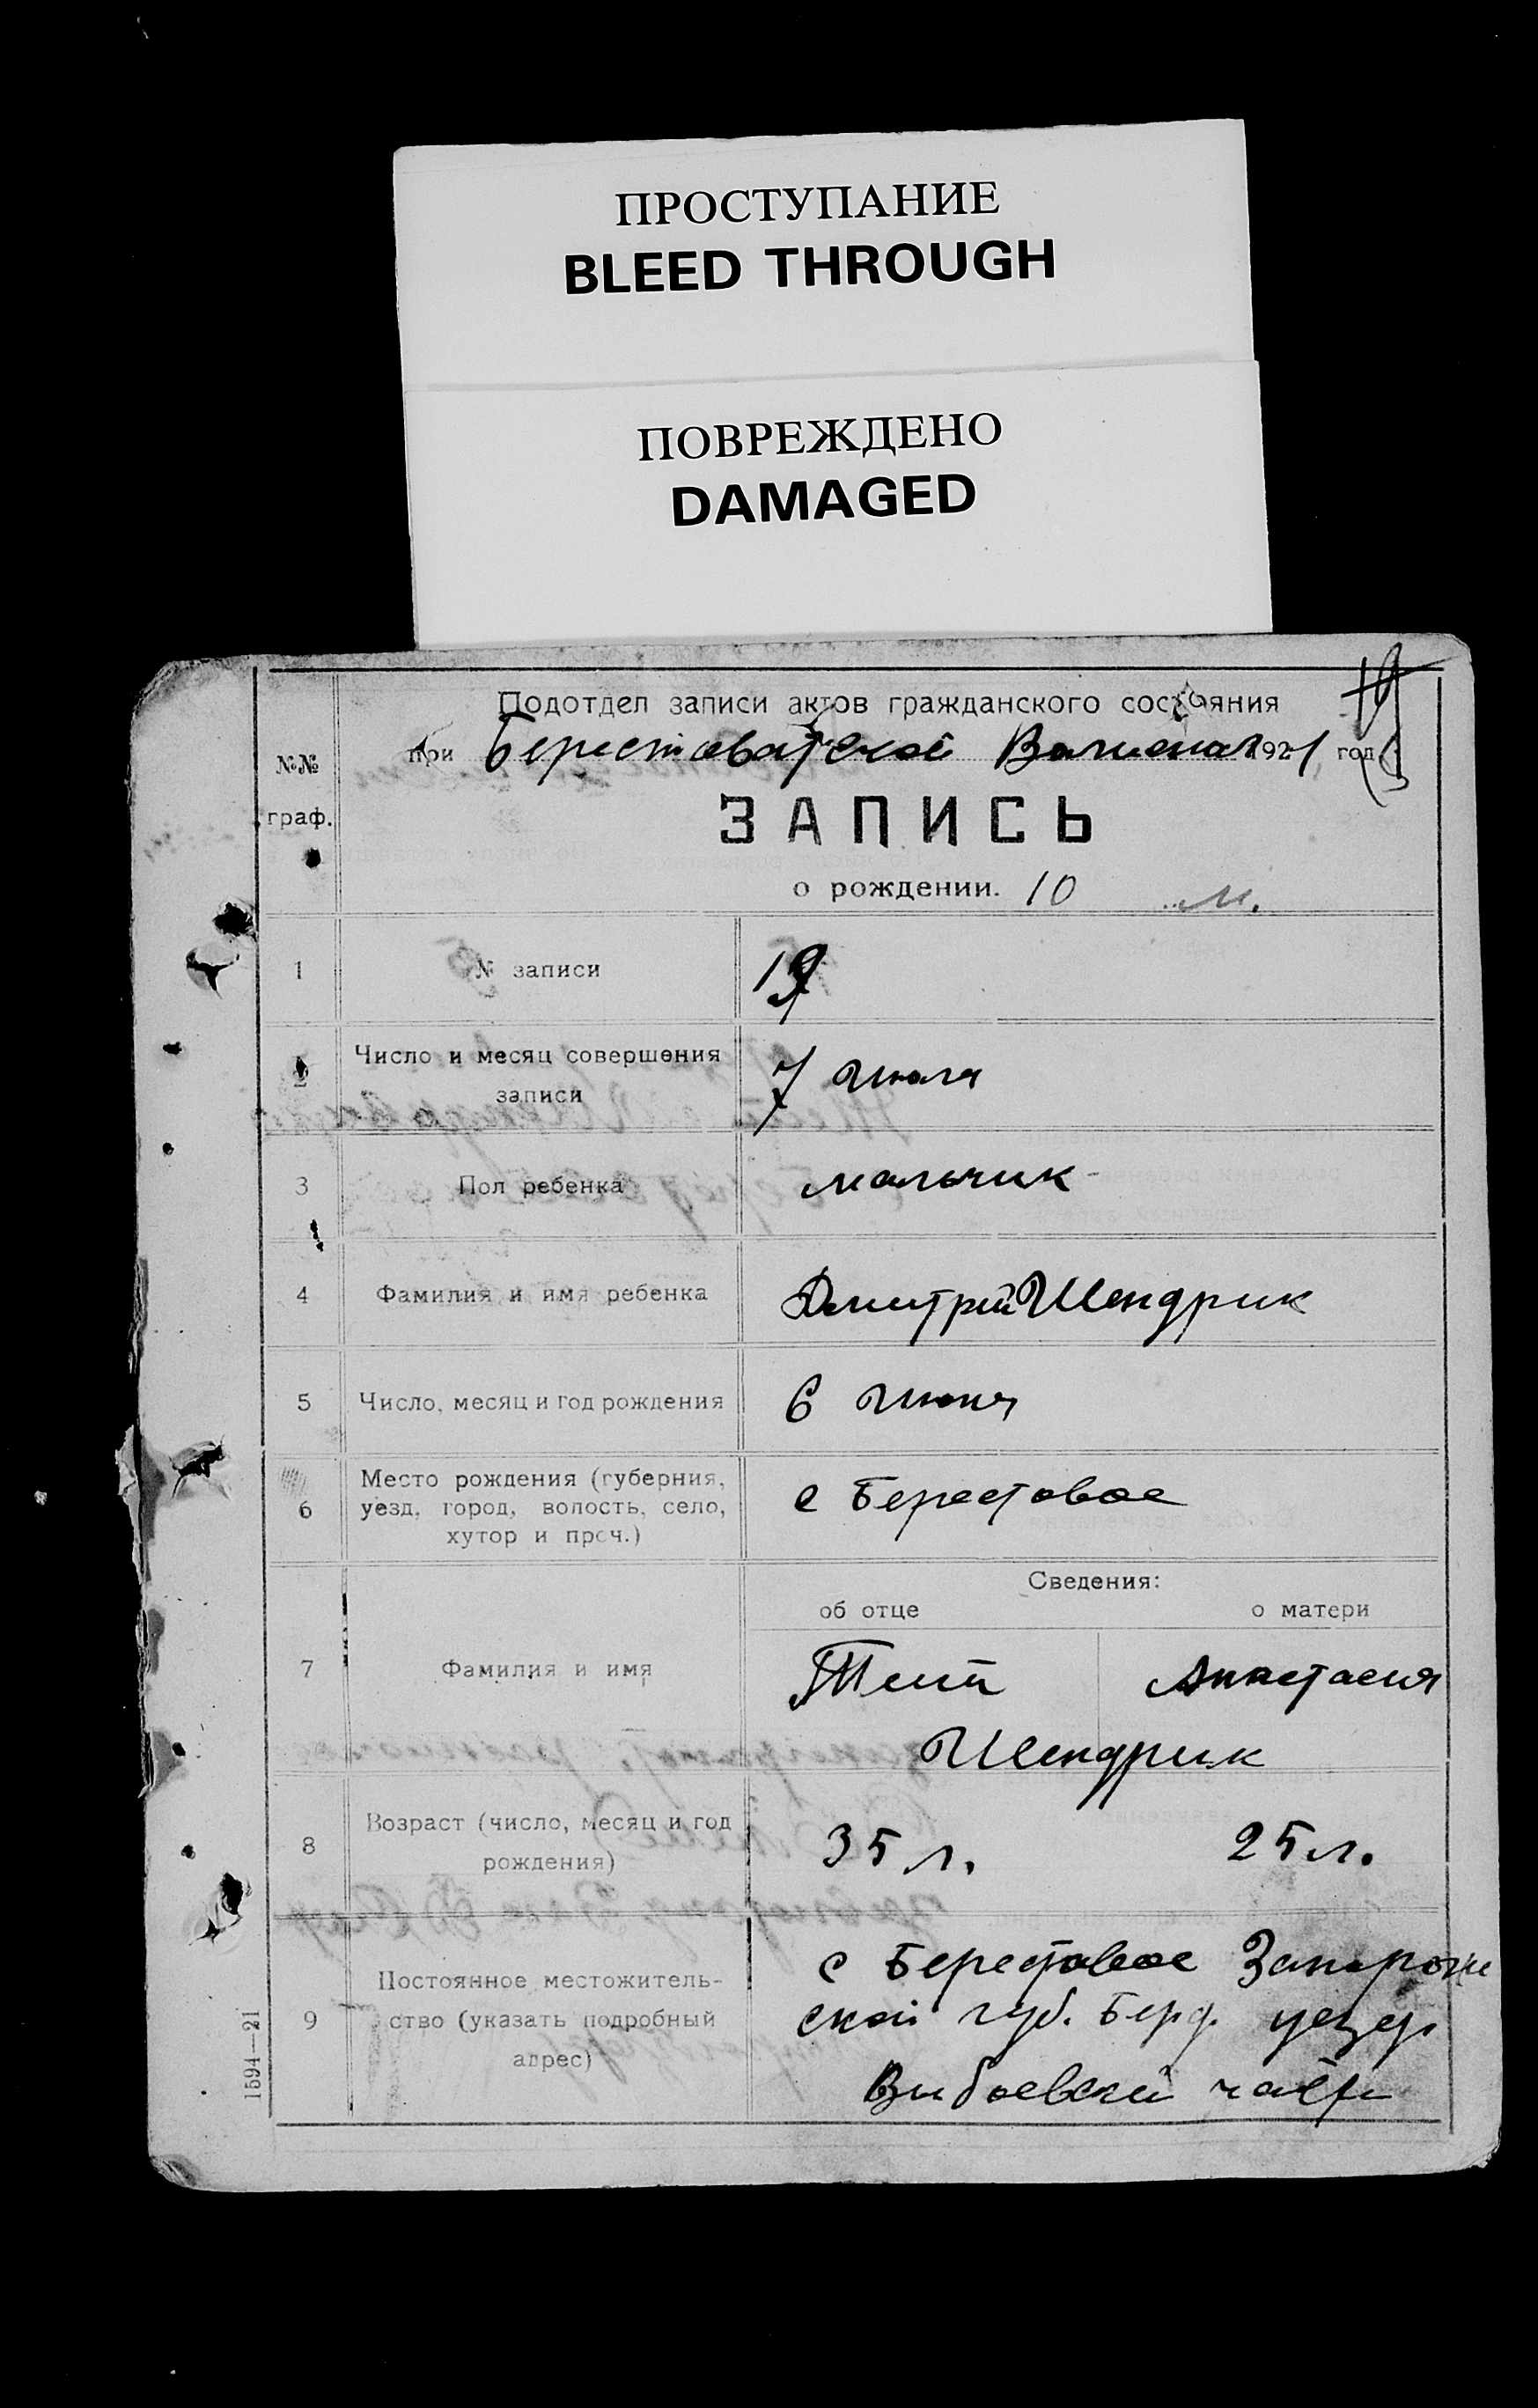 ПРОСТУПАНИЕ
BLEED THROUGH
ПОВРЕЖДЕНО
DAMAGED
Подотдел записи актов гражданского состояния
при 1921 год
№№
граф.
ЗАПИСЬ
о рождении. 10 м.
1 № записи 19
2 Число и месяц совершения
записи
7 Июля
3 Пол ребенка мальчик
4 Фамилия и имя ребенка Дмитрий Шендрик
5 Число, месяц и год рождения 6 Июня
6 Место рождения (губерния,
уезд, город, волость, село,
хутор и проч.)
с Берестовое
Сведения:
об отце о матери
7 Фамилия и имя Тит Анастасия
Шендрик
8 Возраст (число, месяц и год
рождения)
35 л. 25 л.
9 Постоянное местожитель-
ство (указать подробный
адрес)
с Берестовое Запорож
ской губ. Берд. уезд
1594—21